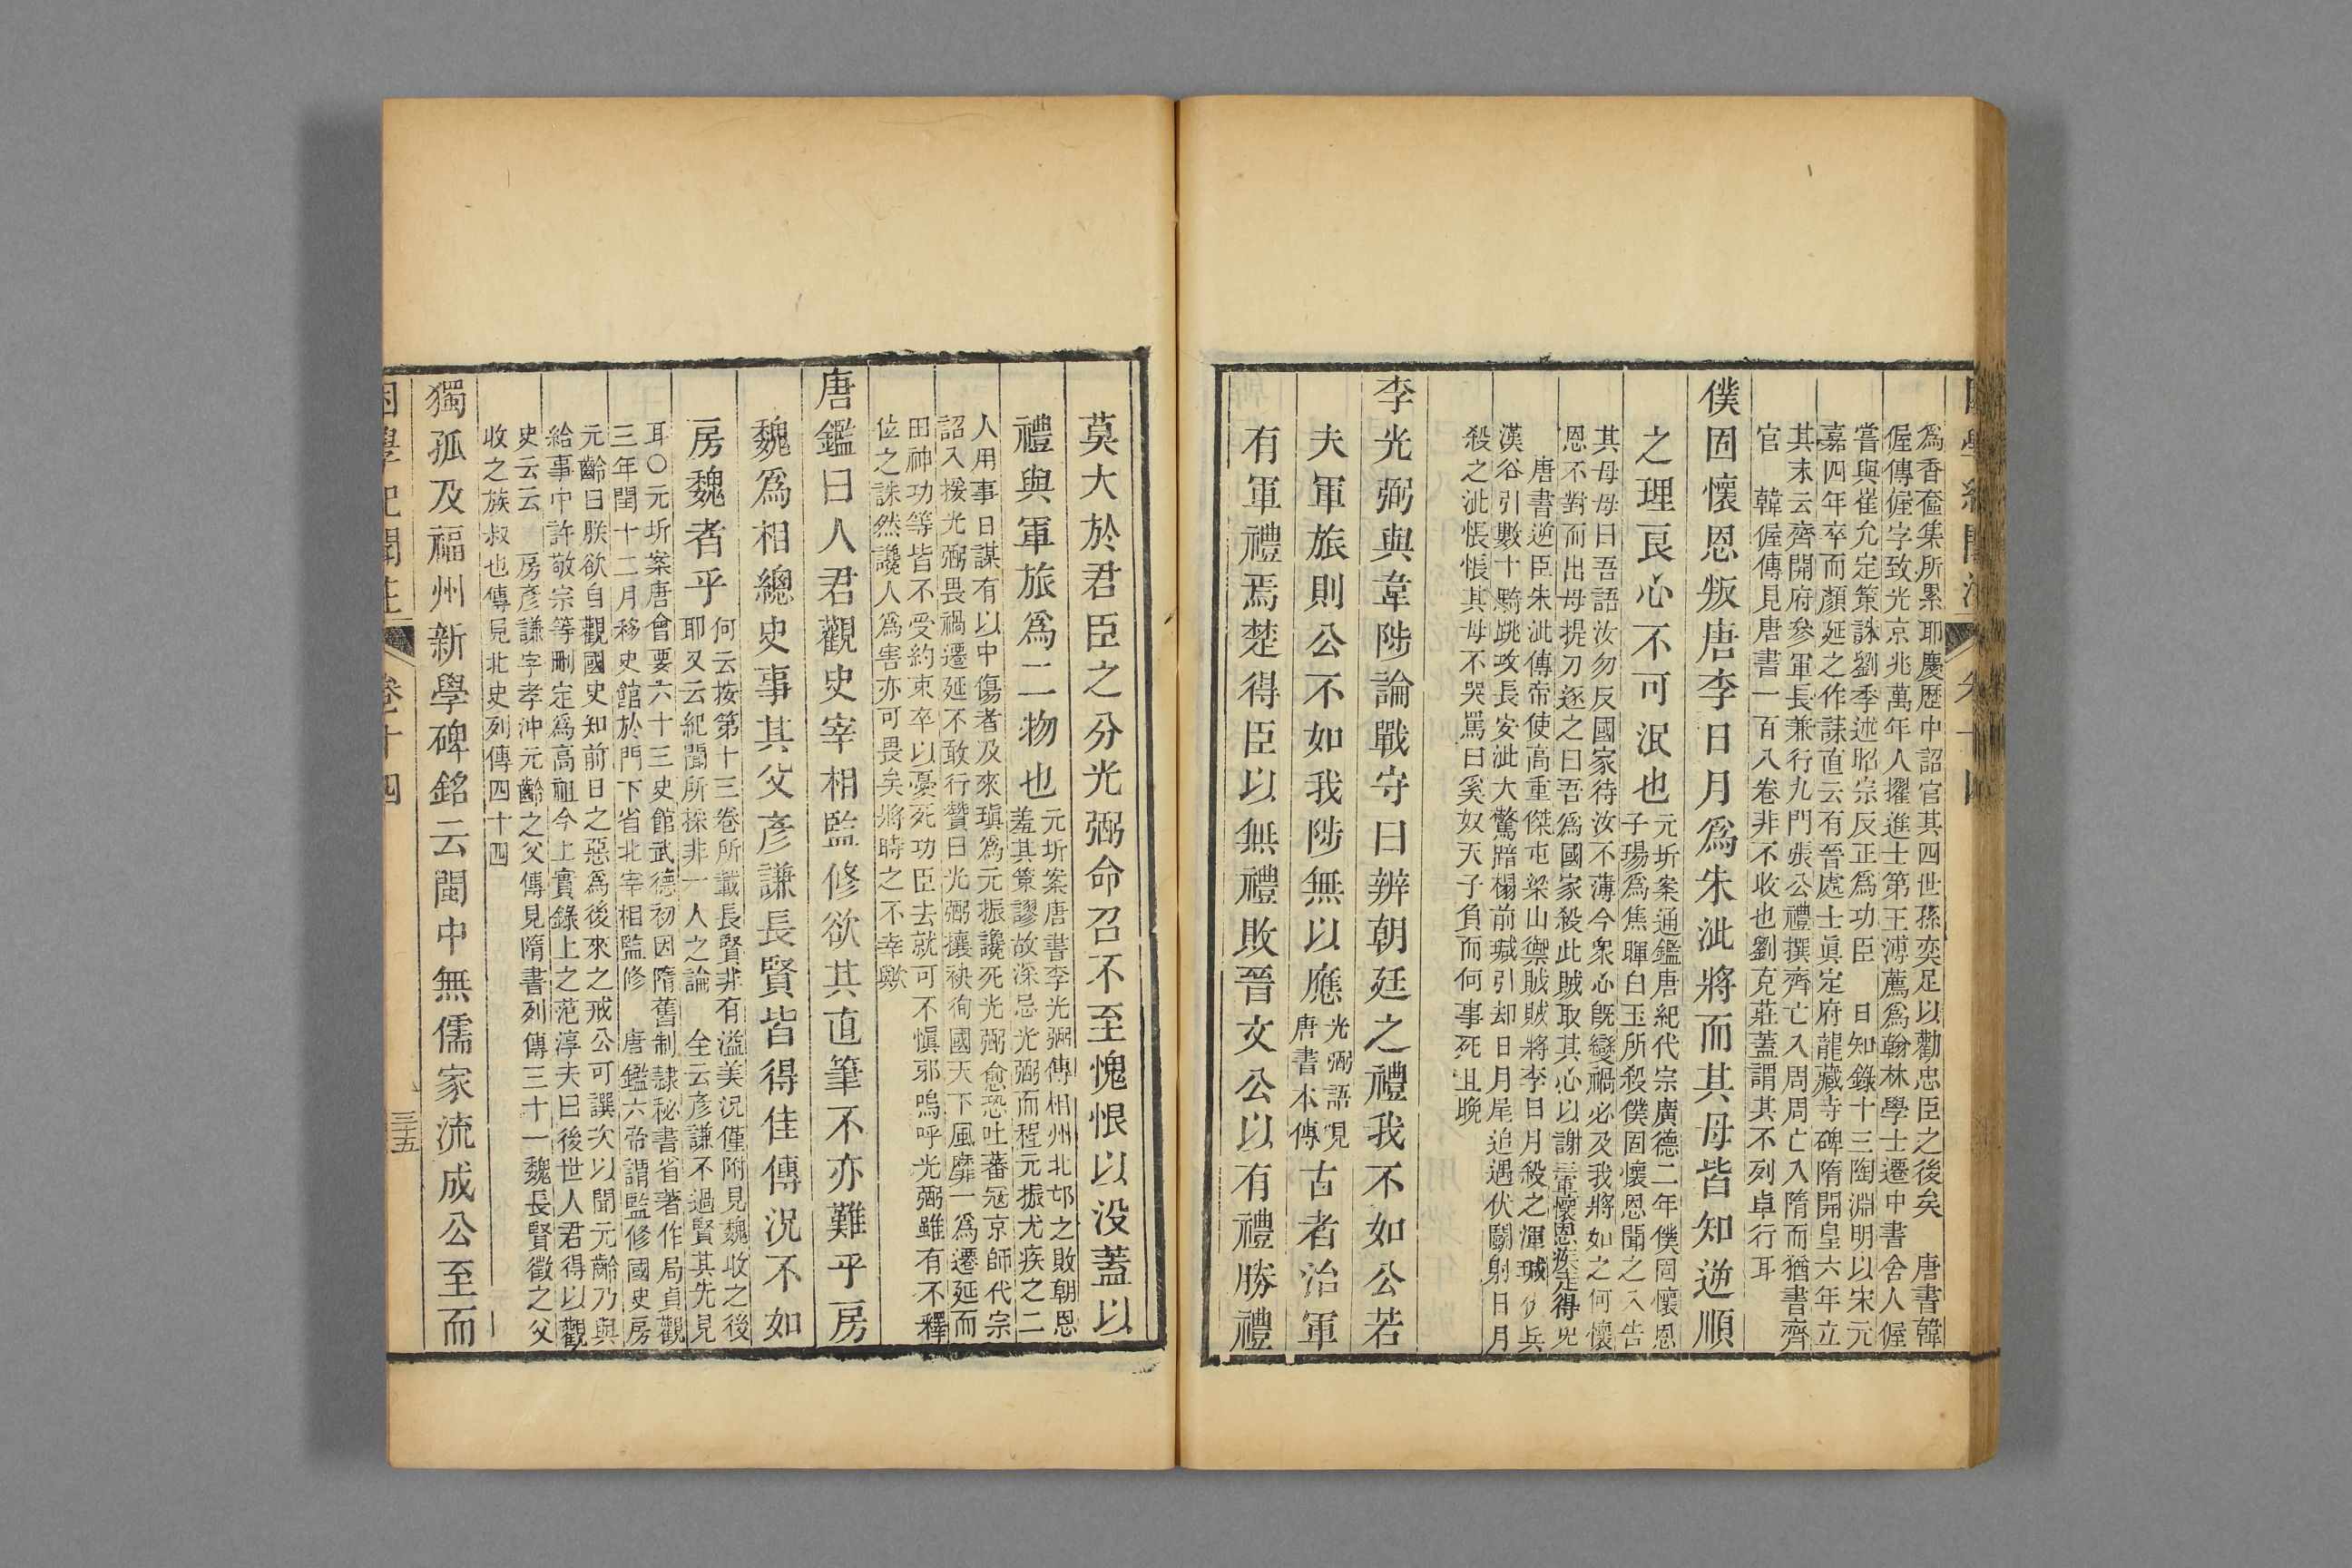 為香奩集所累耶慶歴中詔官其四世孫奕足以勸忠臣之後矣 唐書韓
偓傳偓字致光京兆萬年人擢進士第王溥薦為翰林學士遷中書舍人偓
嘗與崔允定策誅劉季述昭宗反正為功臣 日知錄十三陶淵明以宋元
嘉四年卒而顏延之作誄直云有晉處士眞定府龍藏寺碑隋開皇六年立
其末云齊開府參軍長兼行九門張公禮撰齊亡入周周亡入隋而猶書齊
官 韓偓傳見唐書一百八卷非不收也劉克莊蓋謂其不列卓行耳
僕固懷恩叛唐李日月為朱泚將而其母皆知逆順
之理良心不可泯也
元圻案通鑑唐紀代宗廣德二年僕固懷恩
子瑒為焦暉白玉所殺僕固懷恩聞之入告
其母母曰吾語汝勿反國家待汝不薄今衆心旣變禍必及我將如之何懷
恩不對而出母提刀逐之曰吾為國家殺此賊取其心以謝三軍懷恩疾走得免
唐書逆臣朱泚傳帝使高重傑屯梁山禦賊賊將李日月殺之渾瑊伏兵
漢谷引數十騎跳攻長安泚大驚踣榻前瑊引却日月尾追遇伏鬬射日月
殺之泚悵悵其母不哭罵曰奚奴天子負而何事死且晚
李光弼與韋陟論戰守曰辨朝廷之禮我不如公若
夫軍旅則公不如我陟無以應
光弼語見
唐書本傳
古者治軍
有軍禮焉楚得臣以無禮敗晉文公以有禮勝禮
莫大於君臣之分光弼命召不至愧恨以没蓋以
禮與軍旅為二物也
元圻案唐書李光弼傳相州北邙之敗朝恩
羞其策謬故深忌光弼而程元振尤疾之二
人用事日謀有以中傷者及來瑱為元振讒死光弼愈恐吐蕃寇京師代宗
詔入援光弼畏禍遷延不敢行贊曰光弼攘袂徇國天下風靡一為遷延而
田神功等皆不受約束卒以憂死功臣去就可不愼邪嗚呼光弼雖有不釋
位之誅然讒人為害亦可畏矣將時之不幸歟
唐鑑曰人君觀史宰相監修欲其直筆不亦難乎房
魏為相總史事其父彥謙長賢皆得佳傳況不如
房魏者乎
何云按第十三卷所載長賢非有溢美況僅附見魏收之後
耶又云紀聞所採非一人之論 全云彥謙不過賢其先見
耳○元圻案唐會要六十三史館武德初因隋舊制隷秘書省著作局貞觀
三年閏十二月移史館於門下省北宰相監修 唐鑑六帝謂監修國史房
元齡曰朕欲自觀國史知前日之惡為後來之戒公可譔次以聞元齡乃與
給事中許敬宗等刪定為高祖今上實錄上之范淳夫曰後世人君得以觀
史云云 房彥謙字孝沖元齡之父傳見隋書列傳三十一魏長賢徵之父
收之族叔也傳見北史列傳四十四
獨孤及福州新學碑銘云閩中無儒家流成公至而
困學紀聞注 卷十四 三五